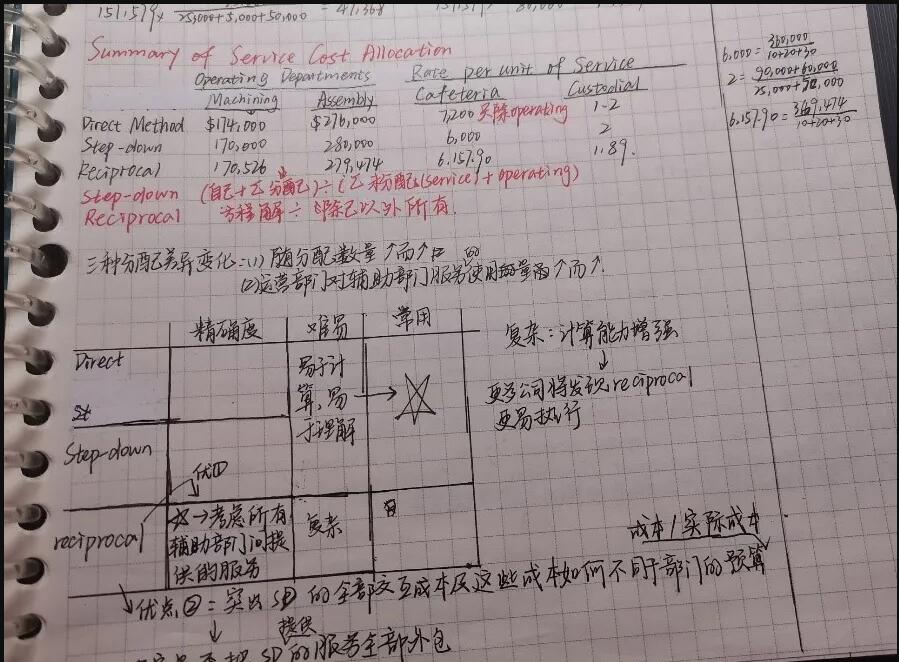 151,579 × 25,000+5,000+50,000 = 47,368
Summary of Service Cost Allocation
Operating Departments Rate per unit of Service
Machining Assembly Cafeteria Custodial
Direct Method $174,000 $276,000 7,200 operating 1.2
Step-down 170,000 280,000 6,000 2
Reciprocal 170,526 279,474 6.157.90 1.89.
Step-down (自己+乙分配己)÷(乙 分配(service)+operating)
Reciprocal 方程解÷ 除己以外所有.
6,000 = 360,000 / 10+20+30
2 = 90,000+60,000 / 25,000+50,000
6.157.90 = 369,474 / 10+20+30
三种分配差异变化:(1) 随分配数量↑而↑
(2)运营部门对辅助部门服务使用 量 ↑而↑.
精确度 难易 常用
Direct 易于计算,易于理解 →
Step-down
优①
reciprocal → 考虑所有辅助部门间提供的服务 复杂
复杂:计算能力增强
↓
更多公司将发现reciprocal
更易执行
成本/实际成本
优点②:突出SD的全部交互成本及这些成本如何不同于部门的预算
↓ 提供
把SD的服务全部外包